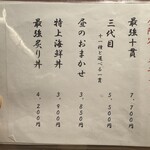 最強十貫
7,700円
三代目
十一種と選べる一貫
5,500円
昼のおまかせ
3,850円
特上海鮮丼
3,900円
最強炙り丼
4,200円